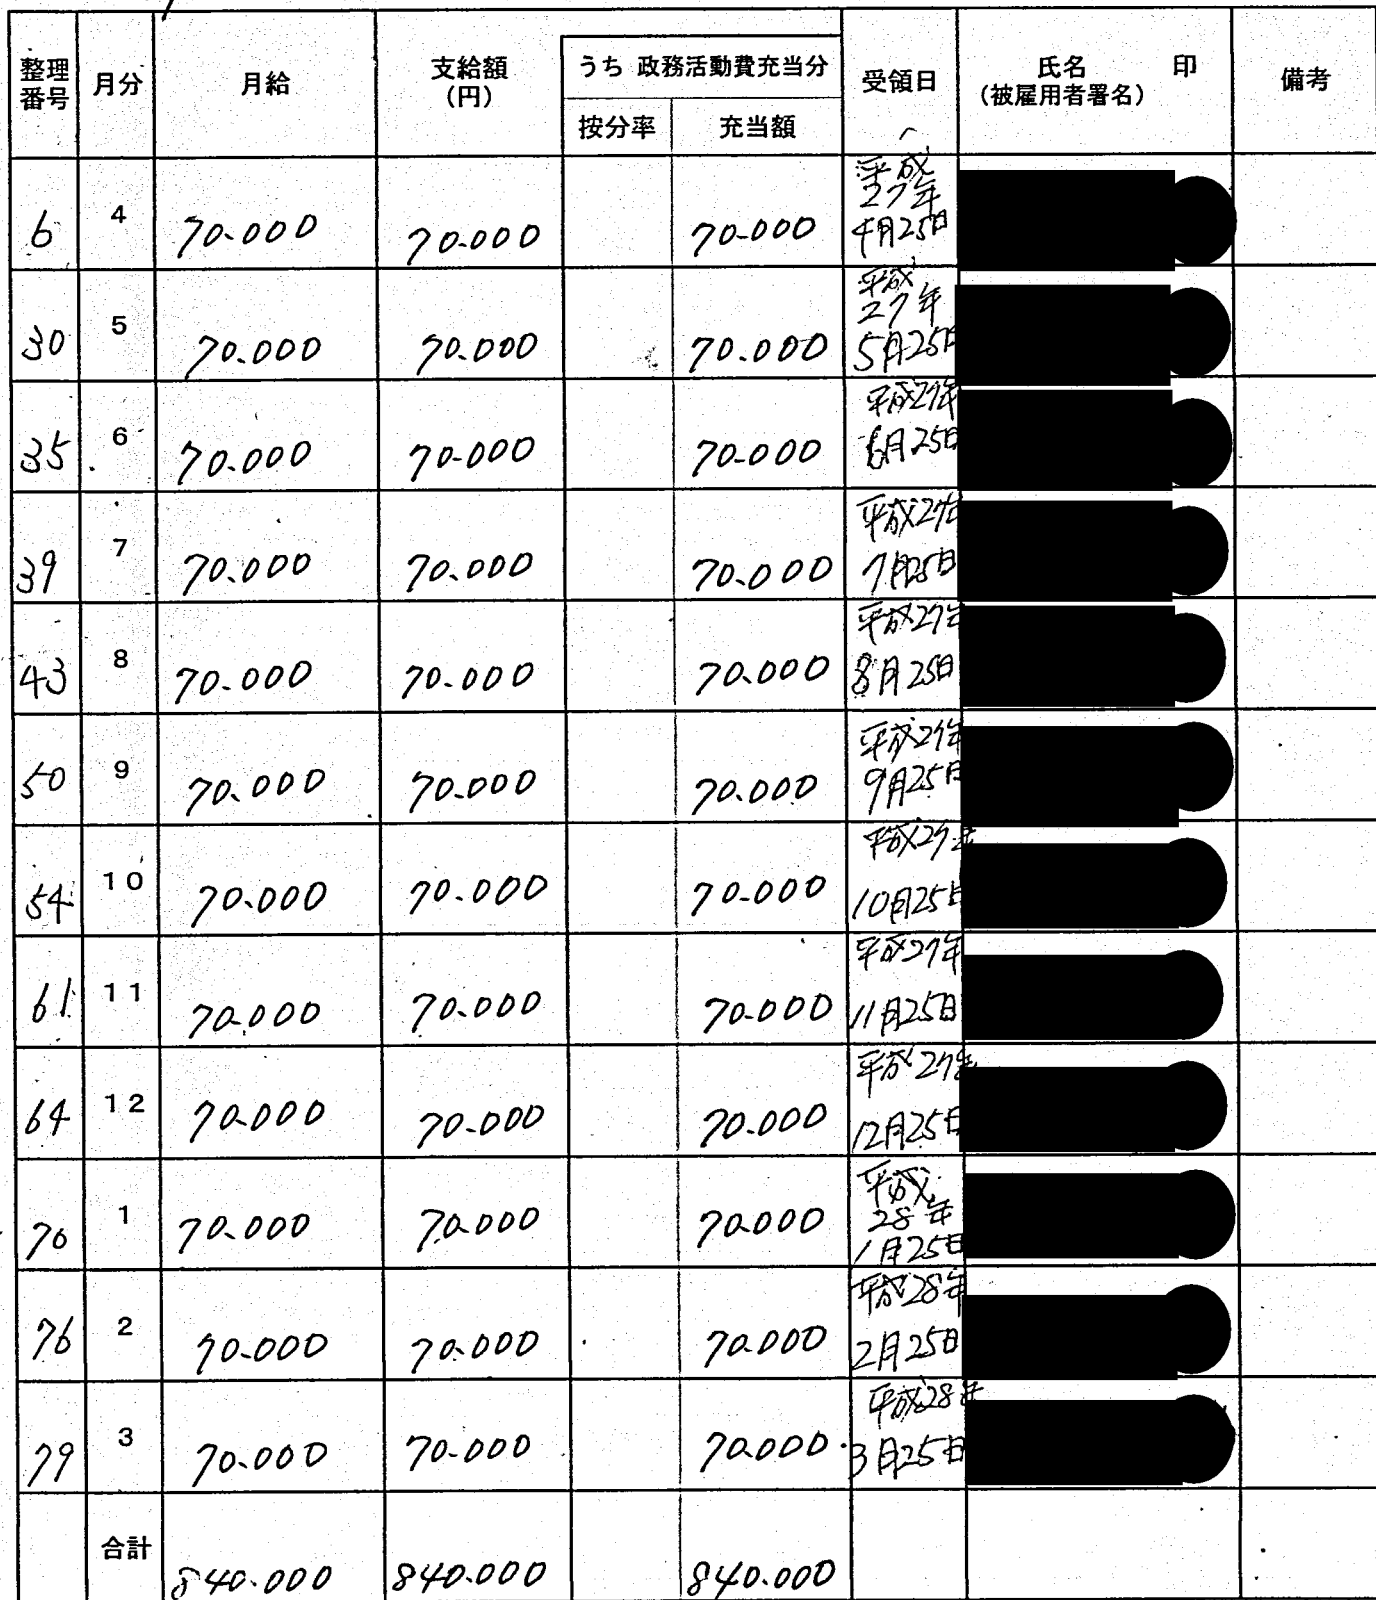 整理番号 月分 月給 支給額(円) うち 政務活動費充当分 受領日 氏名(被雇用者署名) 印 備考
按分率 充当額
6 4 70.000 70.000 70.000 平成27年4月25日
30 5 70.000 70.000 70.000 平成27年5月25日
35 6 70.000 70.000 70.000 平成27年6月25日
39 7 70.000 70.000 70.000 平成27年7月25日
43 8 70.000 70.000 70.000 平成27年8月25日
50 9 70.000 70.000 70.000 平成27年9月25日
54 10 70.000 70.000 70.000 平成27年10月25日
61 11 70.000 70.000 70.000 平成27年11月25日
64 12 70.000 70.000 70.000 平成27年12月25日
70 1 70.000 70.000 70.000 平成28年1月25日
76 2 70.000 70.000 70.000 平成28年2月25日
79 3 70.000 70.000 70.000 平成28年3月25日
合計 840.000 840.000 840.000